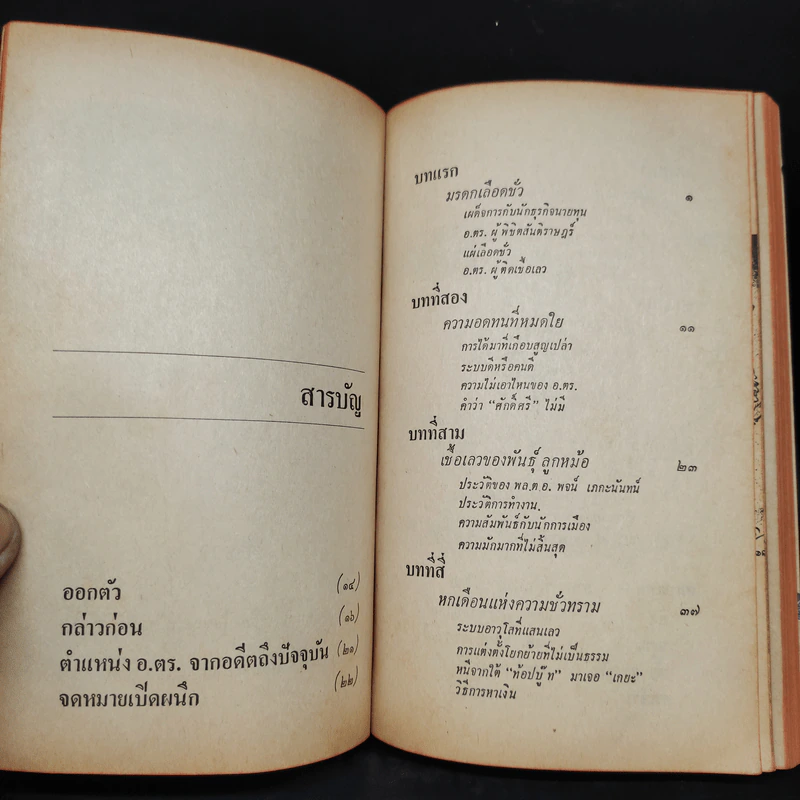 สารบัญ
ออกตัว (๑๔)
กล่าวก่อน (๑๖)
ตำแหน่ง อ.ตร. จากอดีตถึงปัจจุบัน (๒๑)
จดหมายเปิดผนึก (๒๒)
บทแรก
มรดกเลือดชั่ว ๑
เผด็จการกับนักธุรกิจนายทุน
อ.ตร. ผู้พิชิตสันติราษฎร์
แผ่เลือดชั่ว
อ.ตร. ผู้ติดเชื้อเลว
บทที่สอง
ความอดทนที่หมดใย ๑๑
การได้มาที่เกือบสูญเปล่า
ระบบดีหรือคนดี
ความไม่เอาไหนของ อ.ตร.
คำว่า “ศักดิ์ศรี” ไม่มี
บทที่สาม
เชื้อเลวของพันธุ์ ลูกหม้อ ๒๓
ประวัติของ พล.ต อ. พจน์ เภกะนันทน์
ประวัติการทำงาน.
ความสัมพันธ์กับนักการเมือง
ความมักมากที่ไม่สิ้นสุด
บทที่สี่
หกเดือนแห่งความชั่วทราม ๓๗
ระบบอาวุโสที่แสนเลว
การแต่งตั้งโยกย้ายที่ไม่เป็นธรรม
หนีจากใต้ “ท้อปบู๊ท” มาเจอ “เกยะ”
วิธีการหาเงิน